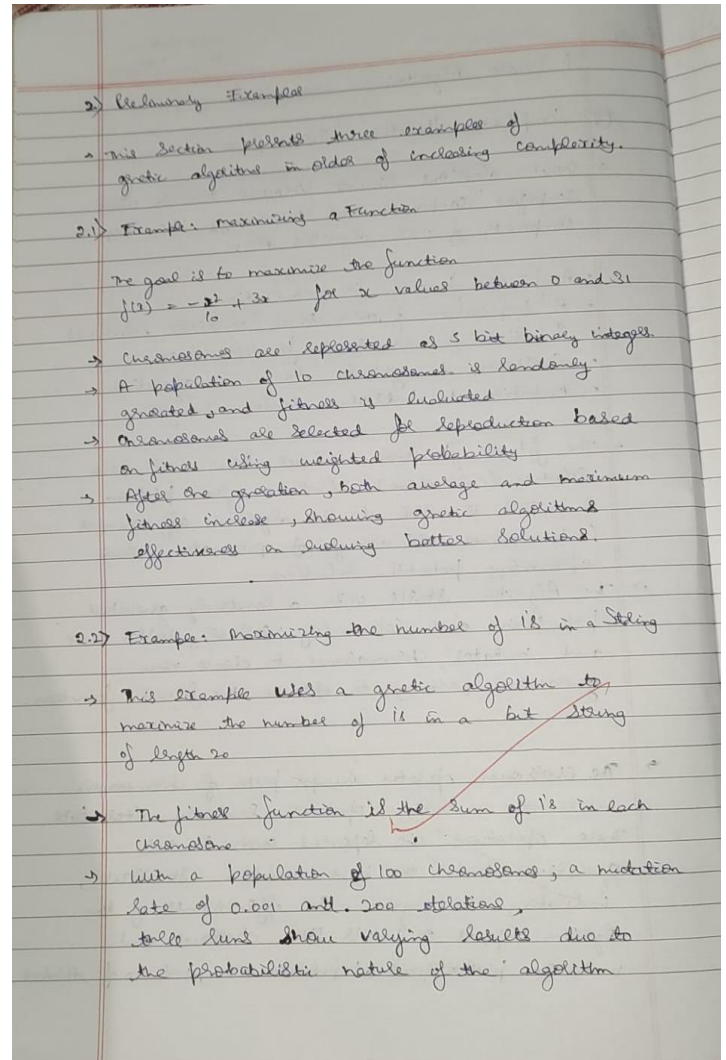 2.) Preliminary Examples
→ This Section presents three examples of
genetic algorithms in order of increasing complexity.
2.1) Example: maximizing a Function
The goal is to maximize the function
f(x) = -x²/10 + 3x for x values between 0 and 31
→ Chromosomes are represented as 5 bit binary integers.
→ A population of 10 chromosomes is randomly
generated, and fitness is evaluated
→ Chromosomes are selected for reproduction based
on fitness using weighted probability
→ After one generation, both average and maximum
fitness increase, showing genetic algorithms
effectiveness on evolving better solutions.
2.2) Example: Maximizing the number of 1's in a String
→ This example uses a genetic algorithm to
maximize the number of 1s in a bit string
of length 20
→ The fitness function is the sum of 1's in each
chromosome
→ with a population of 100 chromosomes, a mutation
rate of 0.001 and 200 iterations,
three runs show varying results due to
the probabilistic nature of the algorithm